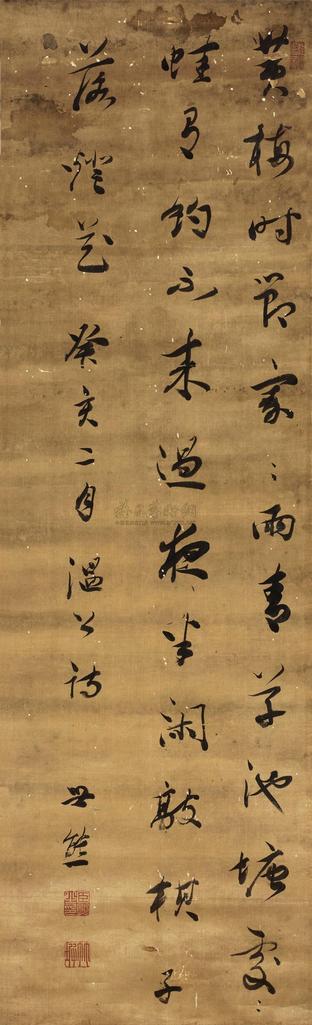 黄梅时节家〻雨青草池塘处〻
蛙有约不来过夜半闲敲棋子
落灯花 癸亥二月 温公诗 世熊